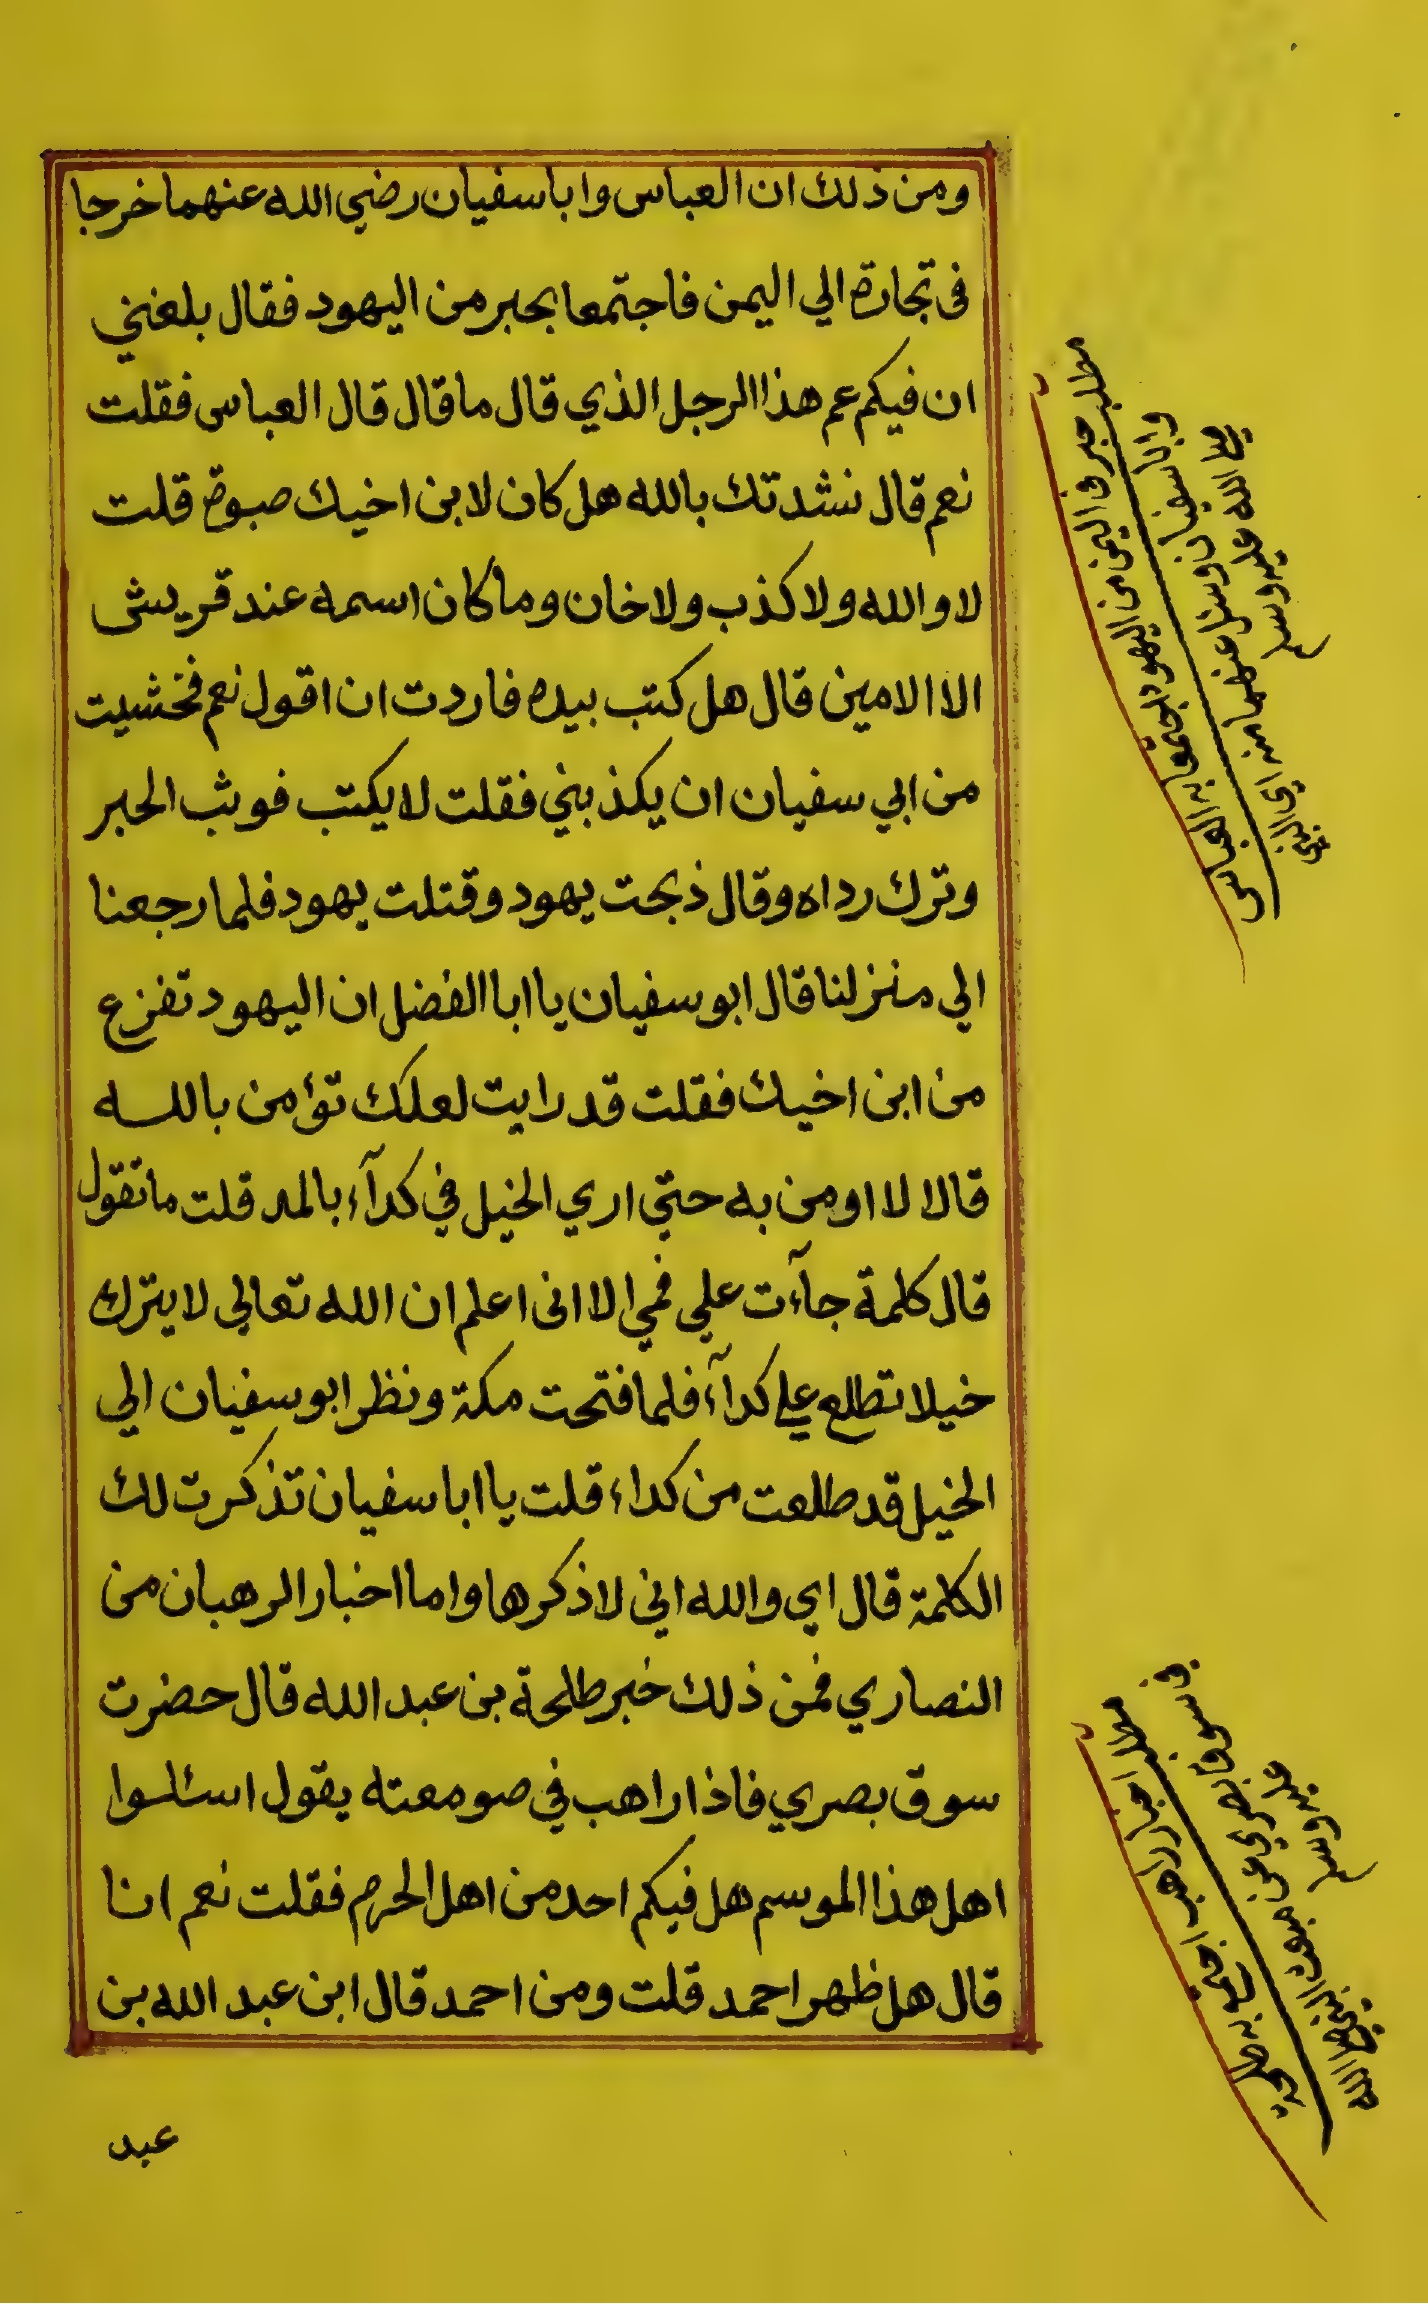 ومن ذلك ان العباس وابا سفيان رضي الله عنهما خرجا
فى تجارة الي اليمن فاجتمعا بحبر من اليهود فقال بلغني
ان فيكم عم هذا الرجل الذي قال ما قال قال العباس فقلت
نعم قال نشدتك بالله هل كان لابن اخيك صبوة قلت
لا والله ولا كذب ولا خان وما كان اسمه عند قريش
الا الامين قال هل كتب بيده فاردت ان اقول نعم فخشيت
من ابي سفيان ان يكذبني فقلت لا يكتب فوثب الحبر
وترك رداه وقال ذبحت يهود وقتلت يهود فلما رجعنا
الي منزلنا قال ابو سفيان يا ابا الفضل ان اليهود تفزع
من ابن اخيك فقلت قد رايت لعلك تؤمن بالله
قالا لا اومن به حتي اري الخيل في كدآء بالمد قلت ما تقول
قال كلمة جآءت علي فمي الا انى اعلم ان الله تعالي لا يترك
خيلا تطلع علي كدآء فلما فتحت مكة ونظر ابو سفيان الي
الخيل قد طلعت من كداء قلت يا ابا سفيان تذكرت لك
الكلمة قال اي والله اني لاذكرها واما اخبار الرهبان من
النصاري فمن ذلك خبر طلحة بن عبد الله قال حضرت
سوق بصري فاذا راهب في صومعته يقول اسئلوا
اهل هذا الموسم هل فيكم احد من اهل الحرم فقلت نعم انا
قال هل ظهر احمد قلت ومن احمد قال ابن عبد الله بن
عبد
مطلب حبر فى اليمن من اليهود اجتمعا به العباس
وابا سفيان وسئل عنهما منه اي النبى
صلي الله عليه وسلم
مطلب اخبار راهب اجتمع به طلحة
فى سوق بصري عن مبعث النبي صلي الله
عليه وسلم